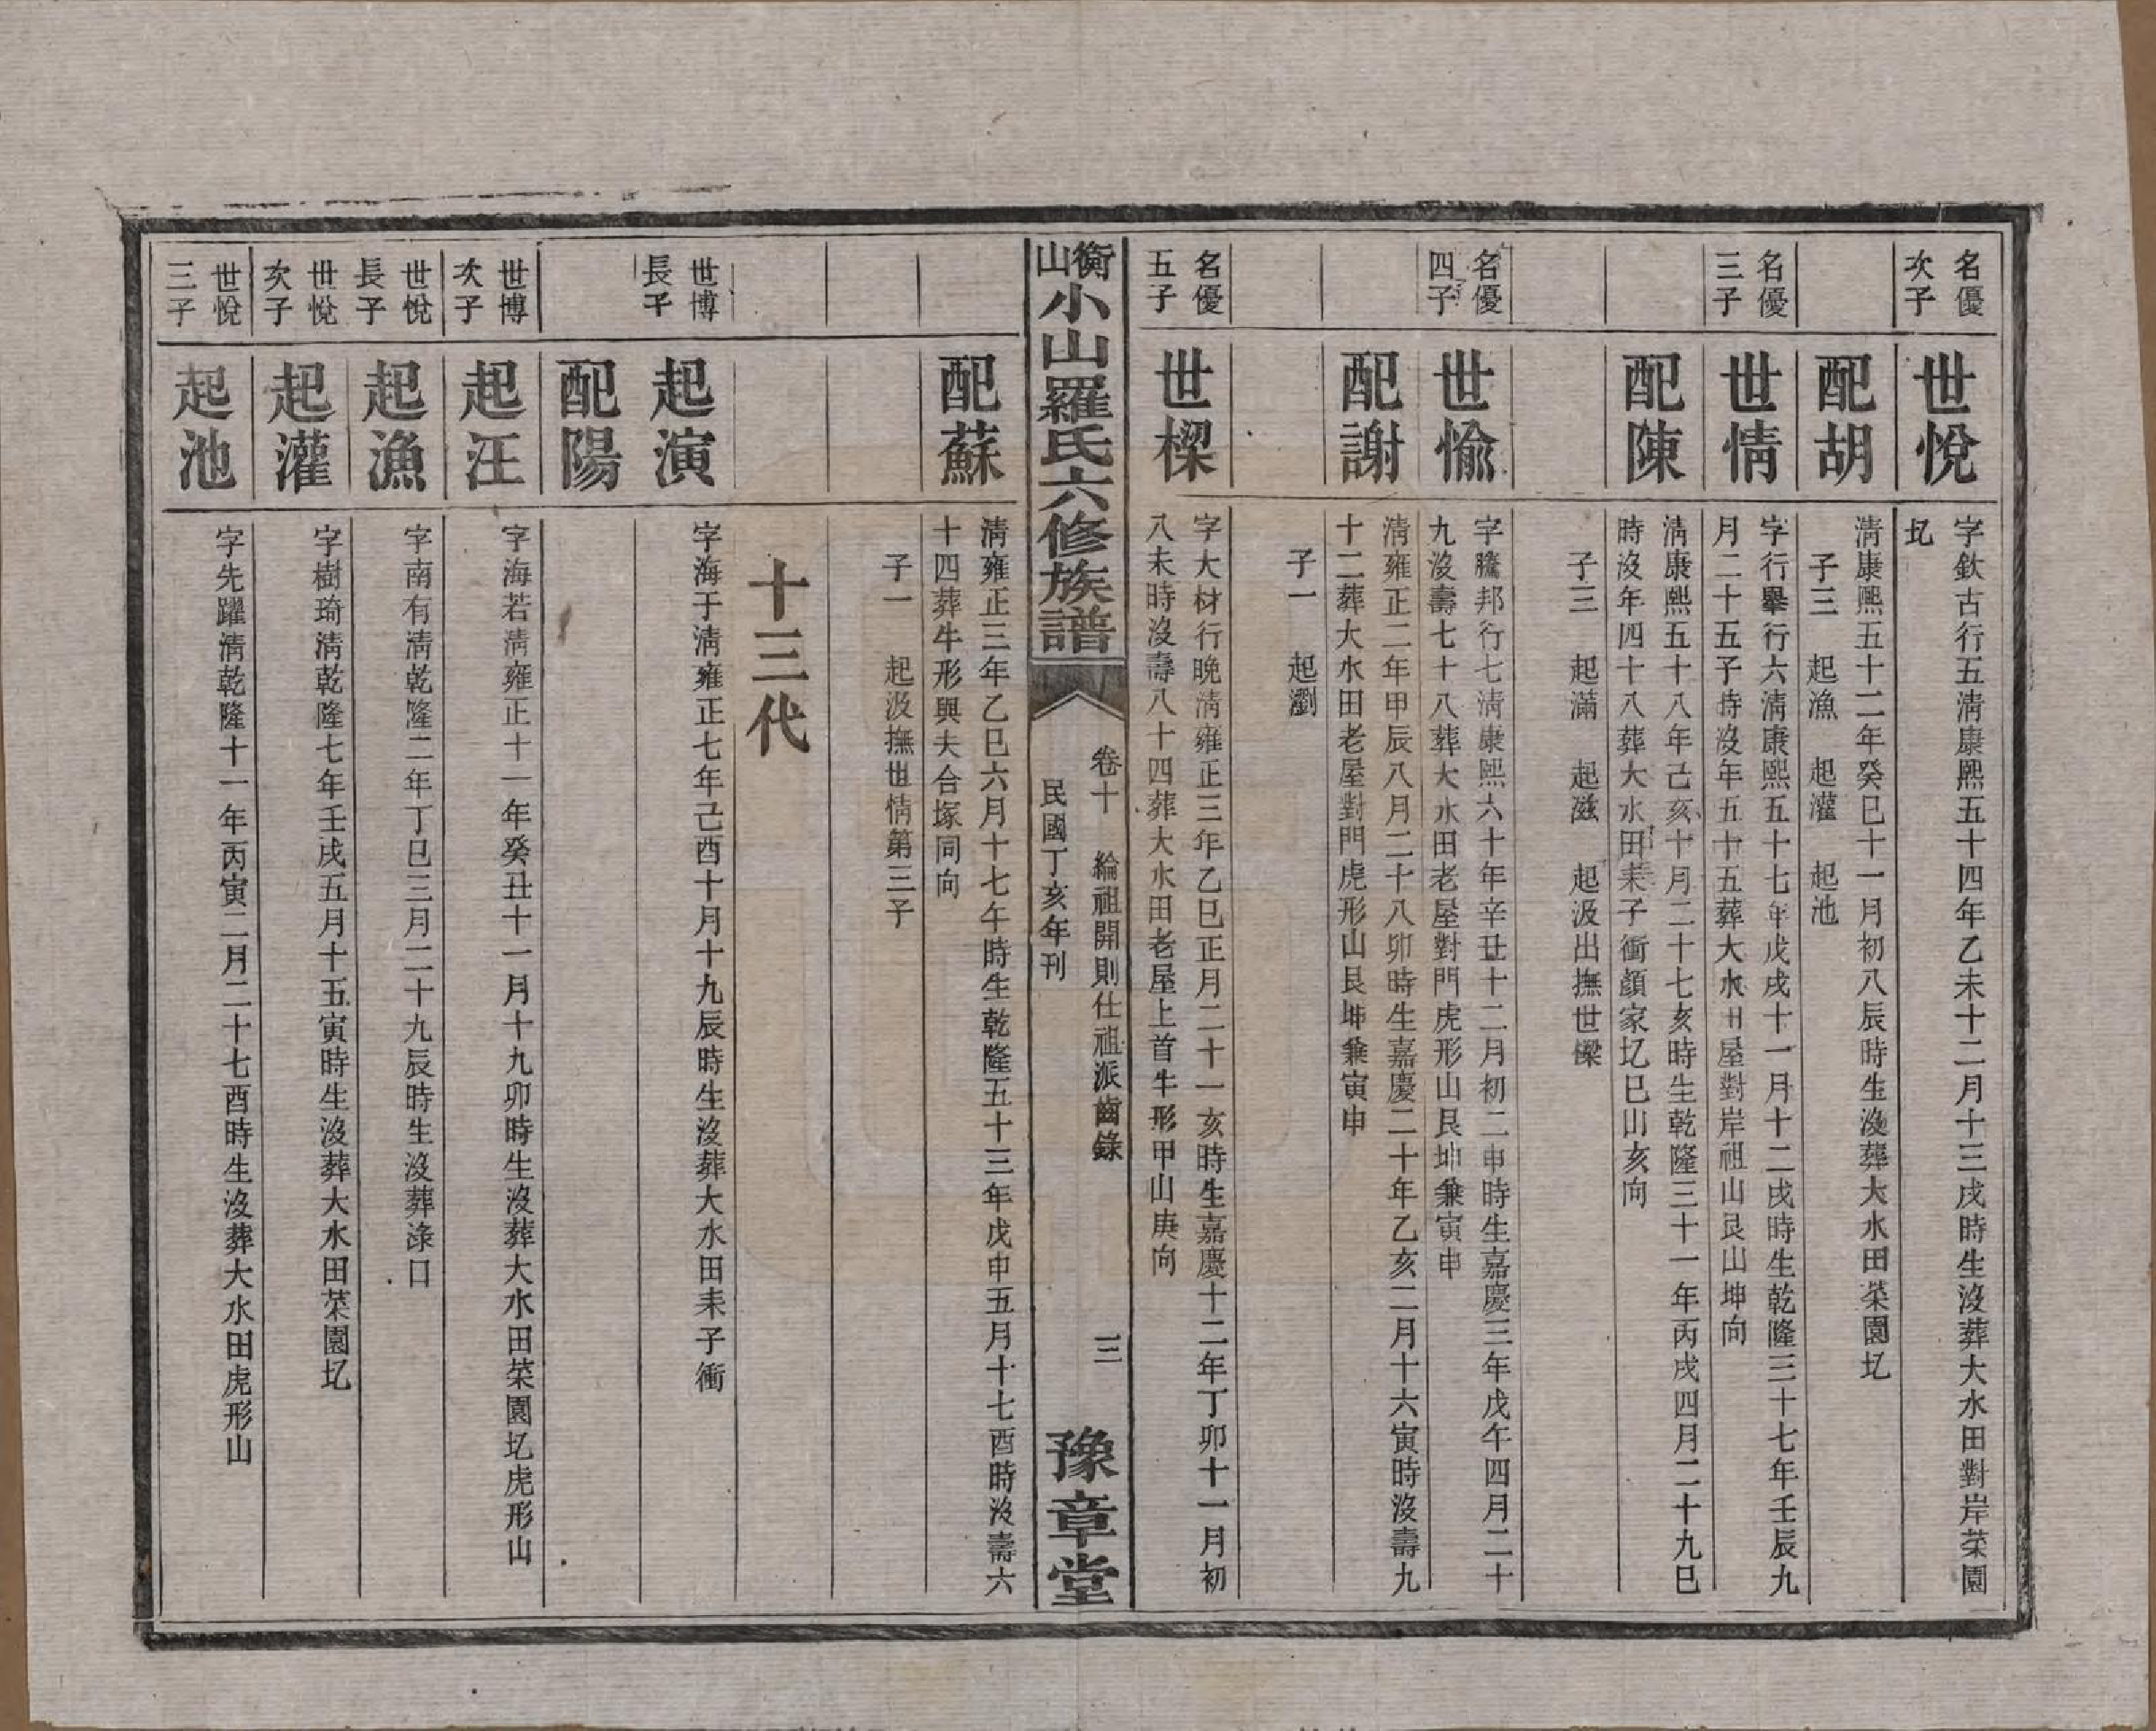 名優
次子
世悅
字欽古行五淸康熙五十四年乙未十二月十三戌時生沒葬大水田對岸菜園
圠
配胡
淸康熙五十二年癸巳十一月初八辰時生沒葬大水田菜園圠
子三　起漁　起灌　起池
名優
三子
世情
字行舉行六淸康熙五十七年戊戌十一月十二戌時生乾隆三十七年壬辰九
月二十五子時沒年五十五葬大水田屋對岸祖山艮山坤向
配陳
淸康熙五十八年己亥十月二十七亥時生乾隆三十一年丙戌四月二十九巳
時沒年四十八葬大水田耒子衝顏家圠巳山亥向
子三　起滿　起滋　起汲出撫世樑
名優
四子
世愉
字騰邦行七淸康熙六十年辛丑十二月初二申時生嘉慶三年戊午四月二十
九沒壽七十八葬大水田老屋對門虎形山艮坤兼寅申
配謝
淸雍正二年甲辰八月二十八卯時生嘉慶二十年乙亥二月十六寅時沒壽九
十二葬大水田老屋對門虎形山艮坤兼寅申
子一　起瀏
名優
五子
世樑
字大材行晚淸雍正三年乙巳正月二十一亥時生嘉慶十二年丁卯十一月初
八未時沒壽八十四葬大水田老屋上首牛形甲山庚向
衡山小山羅氏六修族譜
卷十　綸祖開則仕祖派齒錄　三
民國丁亥年刊
豫章堂
配蘇
淸雍正三年乙巳六月十七午時生乾隆五十三年戊申五月十七酉時沒壽六
十四葬牛形與夫合塚同向
子一　起汲撫世情第三子
十三代
世博
長子
起演
字海于淸雍正七年己酉十月十九辰時生沒葬大水田耒子衝
配陽
世博
次子
起汪
字海若淸雍正十一年癸丑十一月十九卯時生沒葬大水田菜園圠虎形山
世悅
長子
起漁
字南有淸乾隆二年丁巳三月二十九辰時生沒葬淥口
世悅
次子
起灌
字樹琦淸乾隆七年壬戌五月十五寅時生沒葬大水田菜園圠
世悅
三子
起池
字先躍淸乾隆十一年丙寅二月二十七酉時生沒葬大水田虎形山